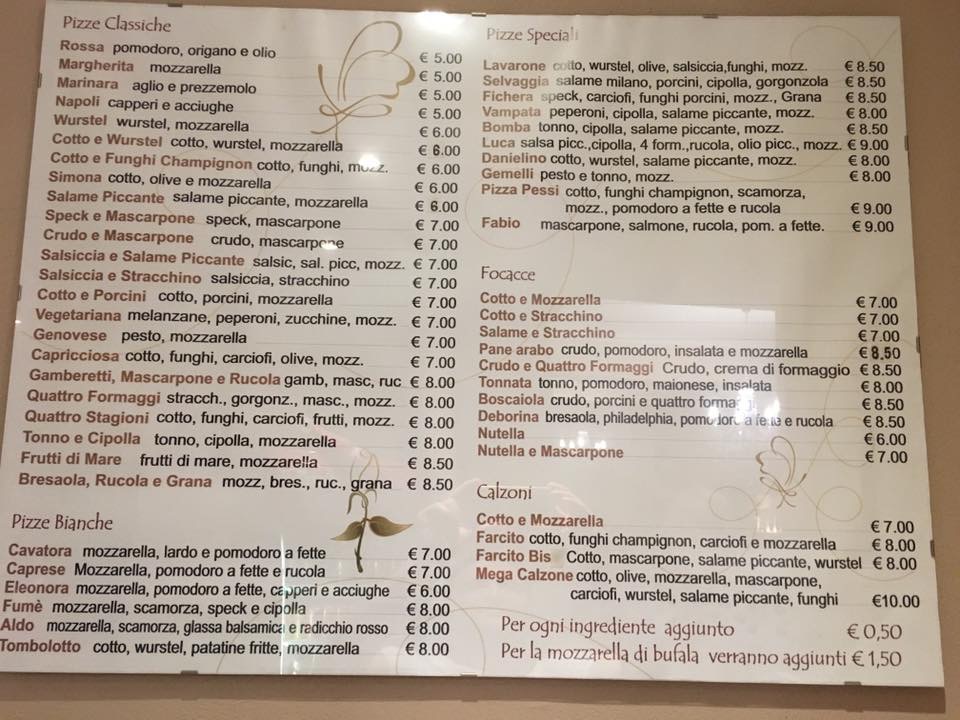 Pizze Classiche
Rossa pomodoro, origano e olio € 5.00
Margherita mozzarella € 5.00
Marinara aglio e prezzemolo € 5.00
Napoli capperi e acciughe € 5.00
Wurstel wurstel, mozzarella € 6.00
Cotto e Wurstel cotto, wurstel, mozzarella € 6.00
Cotto e Funghi Champignon cotto, funghi, mozz. € 6.00
Simona cotto, olive e mozzarella € 6.00
Salame Piccante salame piccante, mozzarella € 6.00
Speck e Mascarpone speck, mascarpone € 7.00
Crudo e Mascarpone crudo, mascarpone € 7.00
Salsiccia e Salame Piccante salsic, sal. picc, mozz. € 7.00
Salsiccia e Stracchino salsiccia, stracchino € 7.00
Cotto e Porcini cotto, porcini, mozzarella € 7.00
Vegetariana melanzane, peperoni, zucchine, mozz. € 7.00
Genovese pesto, mozzarella € 7.00
Capricciosa cotto, funghi, carciofi, olive, mozz. € 7.00
Gamberetti, Mascarpone e Rucola gamb, masc, ruc € 8.00
Quattro Formaggi stracch., gorgonz., masc., mozz. € 8.00
Quattro Stagioni cotto, funghi, carciofi, frutti, mozz. € 8.00
Tonno e Cipolla tonno, cipolla, mozzarella € 8.00
Frutti di Mare frutti di mare, mozzarella € 8.50
Bresaola, Rucola e Grana mozz, bres., ruc., grana € 8.50
Pizze Bianche
Cavatora mozzarella, lardo e pomodoro a fette € 7.00
Caprese Mozzarella, pomodoro a fette e rucola € 7.00
Eleonora mozzarella, pomodoro a fette, capperi e acciughe € 6.00
Fumè mozzarella, scamorza, speck e cipolla € 8.00
Aldo mozzarella, scamorza, glassa balsamica e radicchio rosso € 8.00
Tombolotto cotto, wurstel, patatine fritte, mozzarella € 8.00
Pizze Speciali
Lavarone cotto, wurstel, olive, salsiccia,funghi, mozz. € 8.50
Selvaggia salame milano, porcini, cipolla, gorgonzola € 8.50
Fichera speck, carciofi, funghi porcini, mozz., Grana € 8.50
Vampata peperoni, cipolla, salame piccante, mozz. € 8.00
Bomba tonno, cipolla, salame piccante, mozz. € 8.50
Luca salsa picc.,cipolla, 4 form.,rucola, olio picc., mozz. € 9.00
Danielino cotto, wurstel, salame piccante, mozz. € 8.00
Gemelli pesto e tonno, mozz. € 8.00
Pizza Pessi cotto, funghi champignon, scamorza,
mozz., pomodoro a fette e rucola € 9.00
Fabio mascarpone, salmone, rucola, pom. a fette. € 9.00
Focacce
Cotto e Mozzarella € 7.00
Cotto e Stracchino € 7.00
Salame e Stracchino € 7.00
Pane arabo crudo, pomodoro, insalata e mozzarella € 8.50
Crudo e Quattro Formaggi Crudo, crema di formaggio € 8.50
Tonnata tonno, pomodoro, maionese, insalata € 8.00
Boscaiola crudo, porcini e quattro formaggi € 8.50
Deborina bresaola, philadelphia, pomodoro a fette e rucola € 8.50
Nutella € 6.00
Nutella e Mascarpone € 7.00
Calzoni
Cotto e Mozzarella € 7.00
Farcito cotto, funghi champignon, carciofi e mozzarella € 8.00
Farcito Bis Cotto, mascarpone, salame piccante, wurstel € 8.00
Mega Calzone cotto, olive, mozzarella, mascarpone,
carciofi, wurstel, salame piccante, funghi €10.00
Per ogni ingrediente aggiunto € 0,50
Per la mozzarella di bufala verranno aggiunti € 1,50